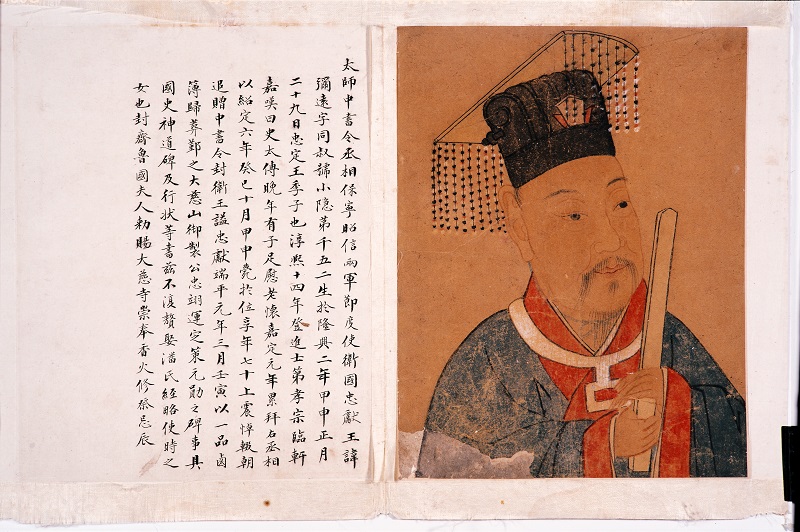 太師中書令丞相保寧昭信兩軍節度使衛國忠獻王諱
彌遠字同叔號小隱第千五二生於隆興二年甲申正月
二十九日忠定王季子也淳熙十四年登進士第孝宗臨軒
嘉嘆曰史太傅晚年有子足慰老懷嘉定元年累拜右丞相
以紹定六年癸巳十月甲申薨於位享年七十上震悼輟朝
追贈中書令封衛王謚忠獻端平元年三月壬寅以一品鹵
簿歸葬鄞之大慈山御製公忠翊運定策元勛之碑事具
國史神道碑及行狀等書茲不復贅娶潘氏經略使時之
女也封齊魯國夫人勅賜大慈寺崇奉香火修祭忌辰